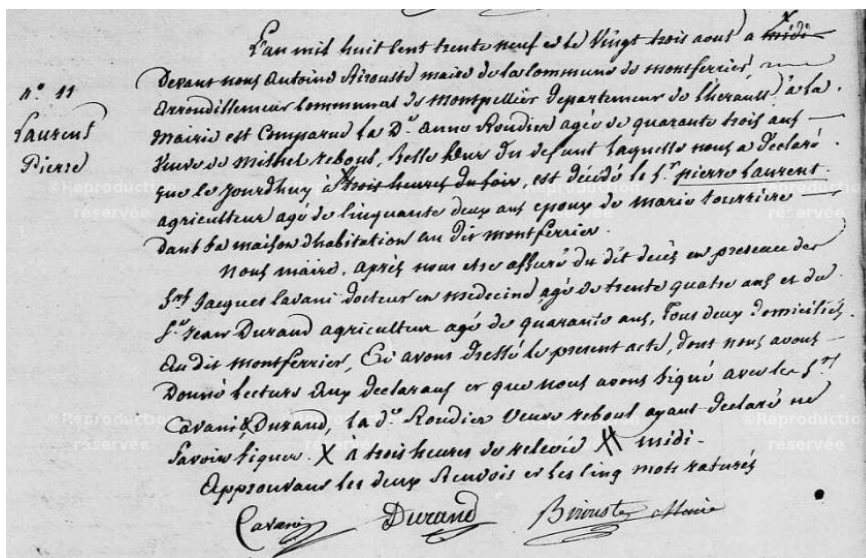 L'an mil huit cent trente neuf et le vingt trois aout a midi X
Devant nous Antoine Birouste maire de la commune de montferrier,
arrondissement communal de montpellier departement de l'herault, à la
n° 11
Laurent
Pierre
Mairie est comparue la De. anne Roudier agée de quarante trois ans
veuve de michel reboul, belle sœur du defunt laquelle nous a declaré
que le jourdhuy à trois heures du soir, est décédé le Sr. pierre Laurent
agriculteur agé de cinquante deux ans epoux de marie tourriere
dans sa maison d'habitation au dit montferrier.
Nous maire, après nous etre assuré du dit decès en presence des
Srs Jacques Cavani docteur en medecine, agé de trente quatre ans et du
Sr. Jean Durand agriculteur agé de quarante ans, tous deux domiciliés
au dit montferrier, En avons dressé le present acte, dont nous avons
Donné lecture aux declarans et que nous avons signé avec les Srs
Cavani & Durand, la de. Roudier veuve reboul ayant declaré ne
savoir signer. X à trois heures de relevée # midi.
Approuvans les deux Renvois et les cinq mots raturés
Cavani Durand Birouste Maire
©Reproduction réservée
©Reproduction réservée
©Reproduction réservée
©Reproduction réservée
©Reproduction réservée
©Reproduction réservée